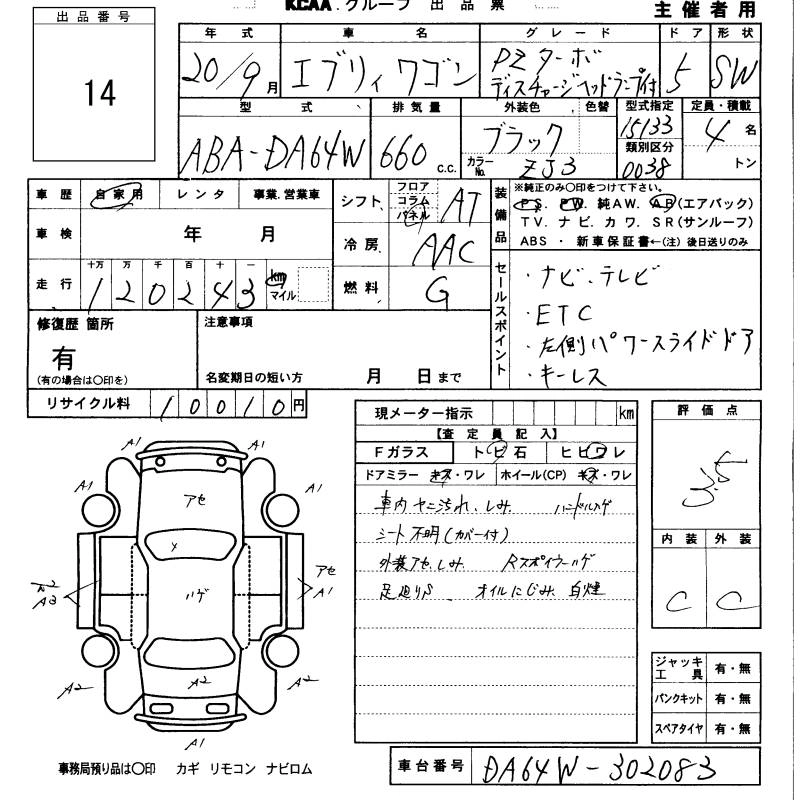 KCAA グループ 出品票
主催者用
出品番号
14
年式 車名 グレード ドア 形状
20/9月 エブリィワゴン PZターボ ディスチャージヘッドランプ付 5 SW
型式 排気量 外装色 色替 型式指定 定員・積載
ABA-DA64W 660 c.c. ブラック カラーNo. ZJ3 15133 類別区分 0038 4名 トン
車歴 自家用 レンタ 事業.営業車
車検 年 月
走行 十万 万 千 百 十 一
120243 km マイル
シフト フロア コラム パネル AT
冷房 AAC
燃料 G
装備品 ※純正のみ○印をつけて下さい。
PS. PW. 純AW. AB(エアバック)
TV. ナビ. カワ. SR(サンルーフ)
ABS ・ 新車保証書←(注)後日送りのみ
セールスポイント
・ナビ、テレビ
・ETC
・左側パワースライドドア
・キーレス
修復歴 箇所
有
(有の場合は○印を)
注意事項
名変期日の短い方 月 日まで
リサイクル料 10010円
現メーター指示 km
【査定員記入】
Fガラス トビ石 ヒビワレ
ドアミラー キズ・ワレ ホイール(CP) キズ・ワレ
車内ヤニ汚れ、しみ ハンドルハゲ
シート不明(カバー付)
外装アセ、しみ Rスポイラーハゲ
足廻りS オイルにじみ 白煙
評価点
3.5
内装 外装
C C
ジャッキ工具 有・無
パンクキット 有・無
スペアタイヤ 有・無
A1 A1
A1 A1
アセ
ハゲ
アセ
A1
A3
A2 A2 A2
A1
事務局預り品は○印 カギ リモコン ナビロム
車台番号 DA64W-302083